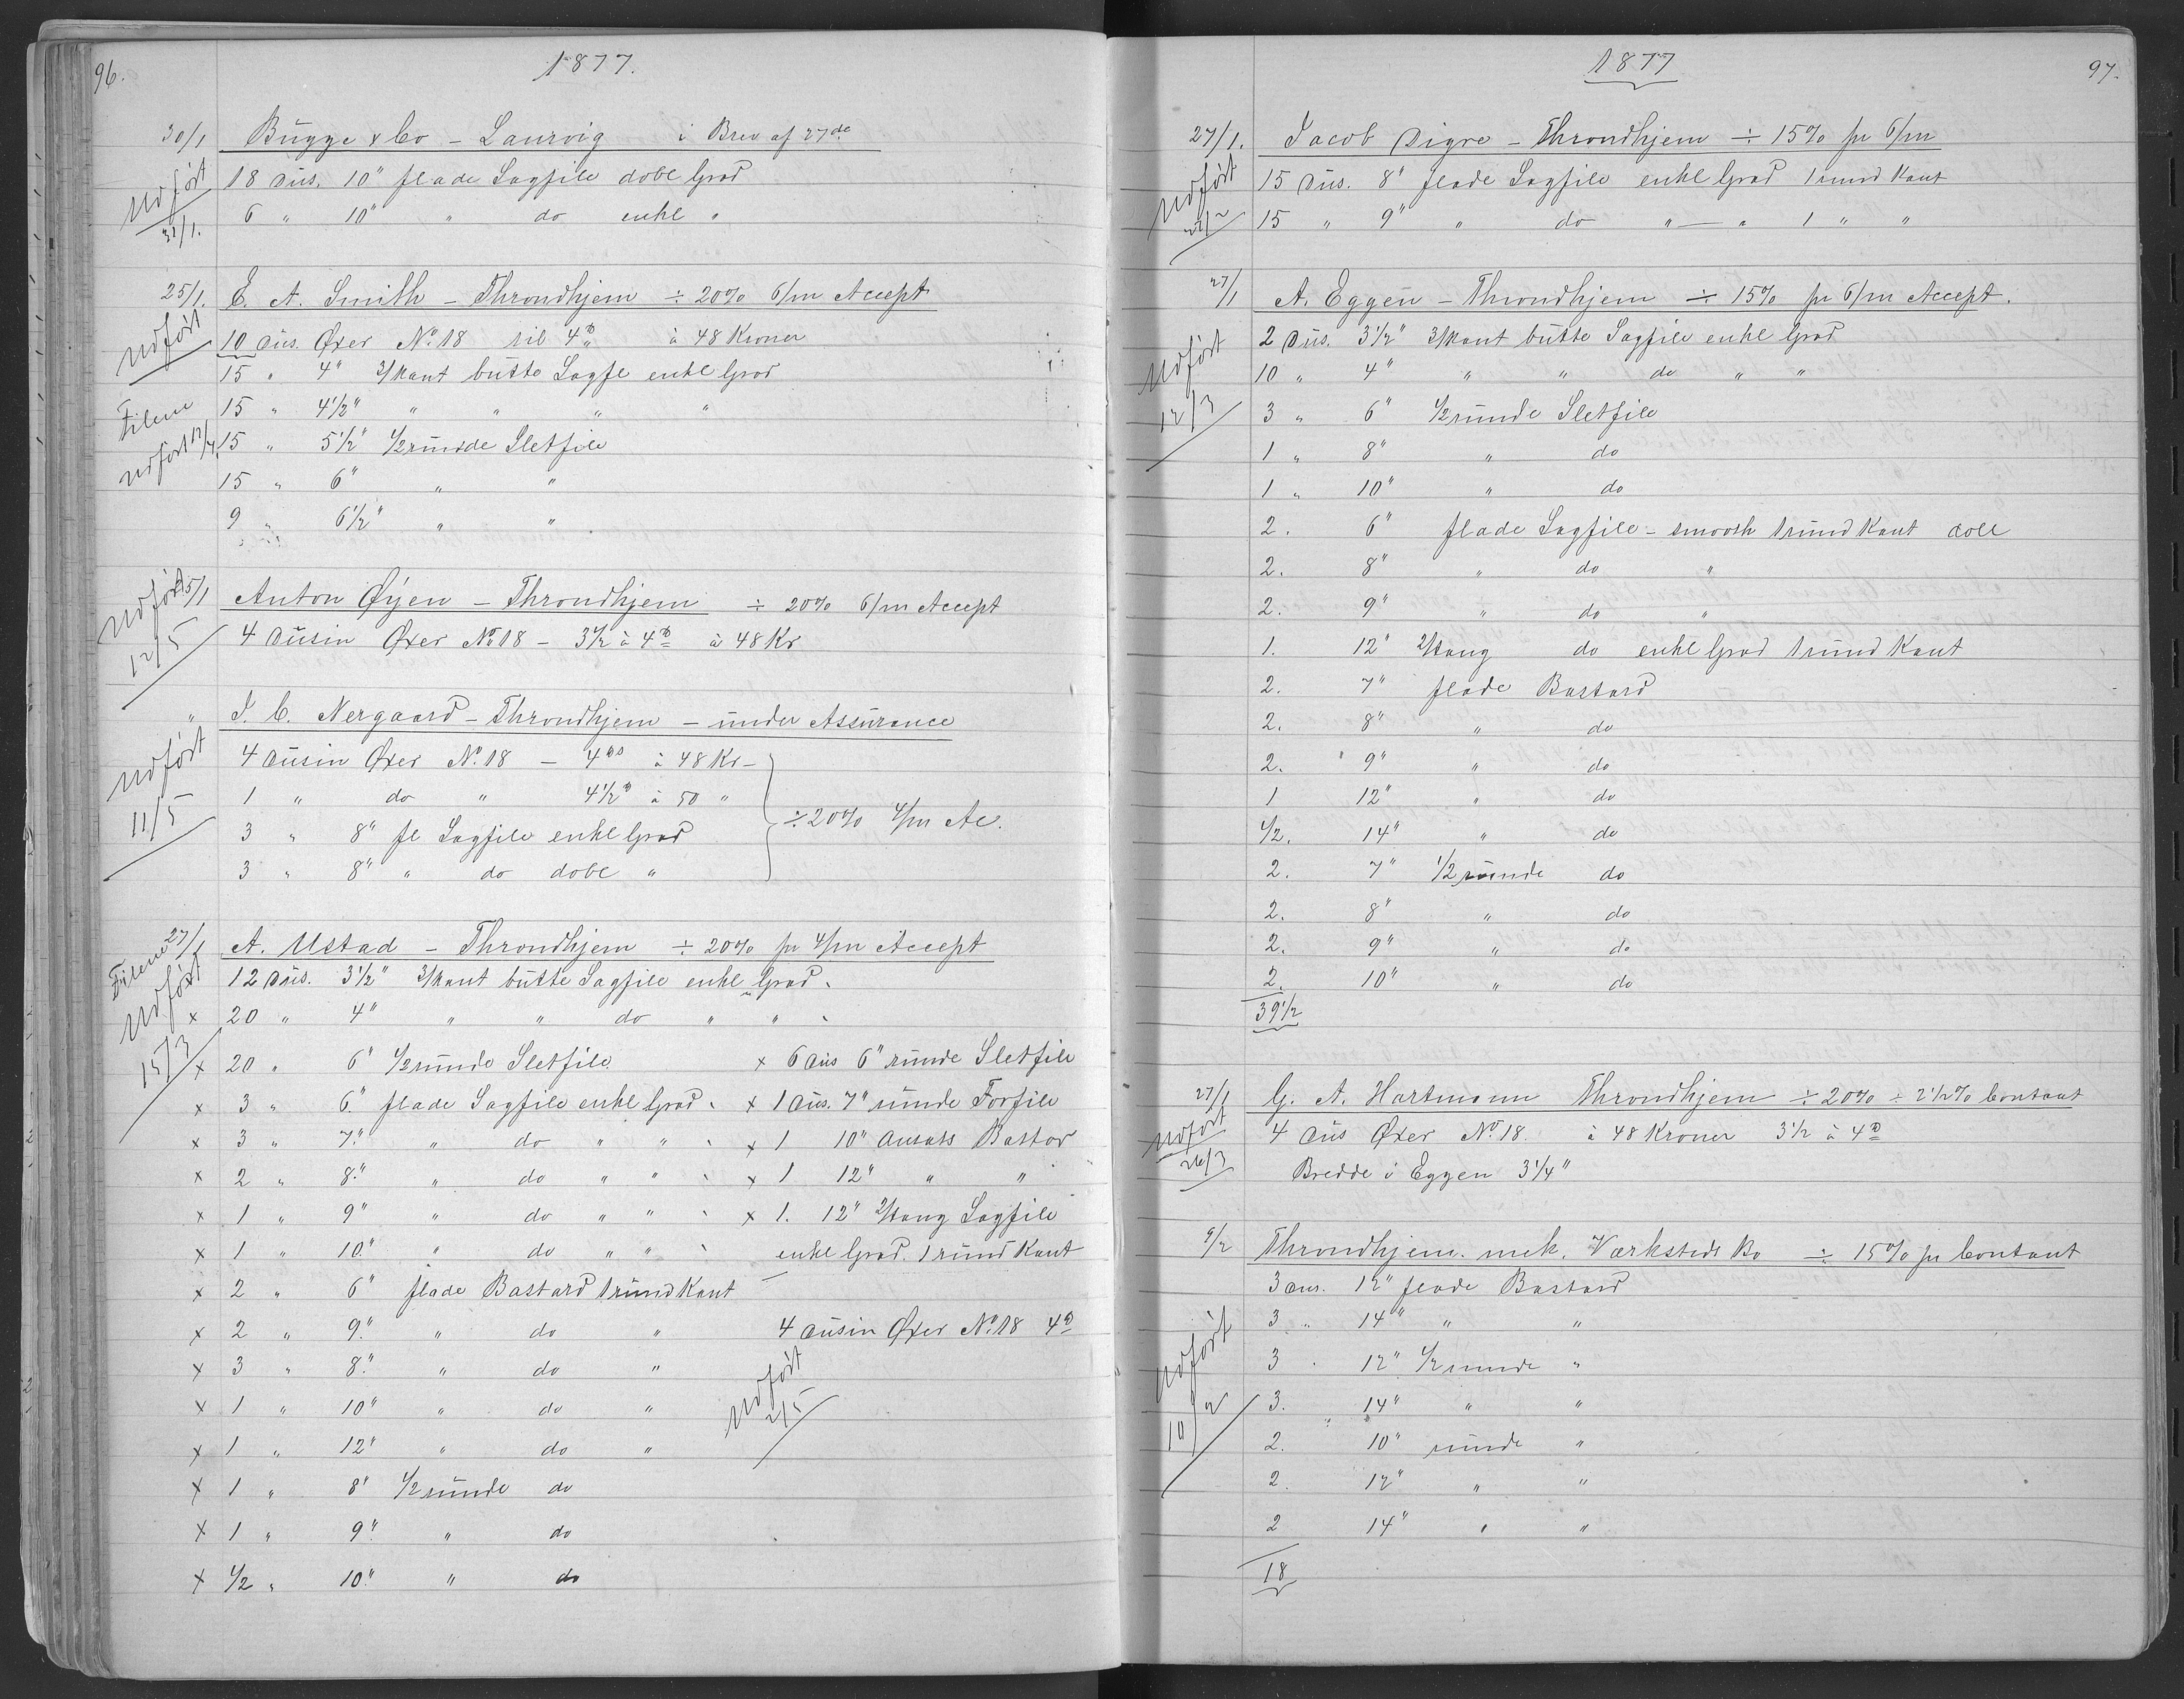 96.
1877.
30/1 Bugge & Co - Laurvig i Brev af 27de
Udført 31/1.
18 Dus. 10" flade Sagfile dobl Grad
6 " 10" " do enkl "
25/1. E. A. Smith - Throndhjem ÷ 20% 6/m Accept
Udført
10 Dus. Øxer No 18 til 4 à 48 Kroner
15 " 4" 3/kant butte Sagfe enkl Grad
Filene udført 12/4
15 " 4½" " " " "
15 " 5½" ½runde Sletfile
15 " 6" " "
9 " 6½" " "
25/1 Anton Øyen - Throndhjem ÷ 20% 6/m Accept
Udført 12/5
4 Dusin Øxer No 18 - 3½ à 4 à 48 Kr
" I. C. Nergaard - Throndhjem - under Assurance
Udført 11/5
4 Dusin Øxer No. 18 - 4 à 48 Kr -
1 " do " 4½ à 50 "
3 " 8" fl Sagfile enkl Grad
3 " 8" " do dobl "
÷ 20% 4/m Ac.
27/1 A. Ustad - Throndhjem ÷ 20% pr 4/m Accept
Filene Udført 15/3
12 Dus. 3½" 3/kant butte Sagfile enkl Grad.
x 20 " 4" " " do " "
x 20 " 6" ½runde Sletfile
x 3 " 6" flade Sagfile enkl Grad
x 3 " 7" " do " "
x 2 " 8" " do " "
x 1 " 9" " do " "
x 1 " 10" " do " "
x 2 " 6" flade Bastard 1 rund Kant
x 2 " 9" " do "
x 3 " 8" " do "
x 1 " 10" " do "
x 1 " 12" " do "
x 1 " 8" ½runde do
x 1 " 9" " do
x ½ " 10" " do
x 6 Dus 6" runde Sletfile
x 1 Dus. 7" runde Forfile
x 1 10" Ansats Bastar
x 1 12" " "
x 1. 12" 2/tang Sagfile
enkl Grad. 1 rund Kant
4 Dusin Øxer No. 18 4
Udført 2/5
1877
97.
27/1. Jacob Digre - Throndhjem ÷ 15% pr 6/m
Udført 22/2
15 Dus. 8" flade Sagfile enkl Grad 1 rund Kant
15 " 9" " do " — " 1 " "
27/1 A. Eggen - Throndhjem ÷ 15% pr 6/m Accept.
Udført 12/3
2 Dus. 3½" 3/kant butte Sagfile enkl Grad
10 " 4" " " do " "
3 " 6" ½runde Sletfile
1 " 8" " do
1 " 10" " do
2. 6" flade Sagfile - smooth 1 rund Kant
2. 8" " do "
2. 9" " do "
1. 12" 2/tang do enkl Grad 1 rund Kant
2. 7" flade Bastard
2. 8" " do
2. " 9" " do
1 12" " do
½. 14" " do
2. 7" ½ runde do
2. 8" " do
2. 9" " do
2. 10" " do
39½
27/1 G. A. Hartmann Throndhjem ÷ 20% ÷ 2½% Contant
Udført 26/3
4 Dus Øxer No. 18. à 48 Kroner 3½ à 4
Bredde i Eggen 3¼"
9/2 Throndhjem. mek. Værksteds Bo ÷ 15% pr Contant
Udført 10/2
3 Dus. 12" flade Bastard
3 " 14" " "
3 . 12" ½ runde "
3. 14" " "
2. 10" runde "
2. 12" " "
2 14" " "
18